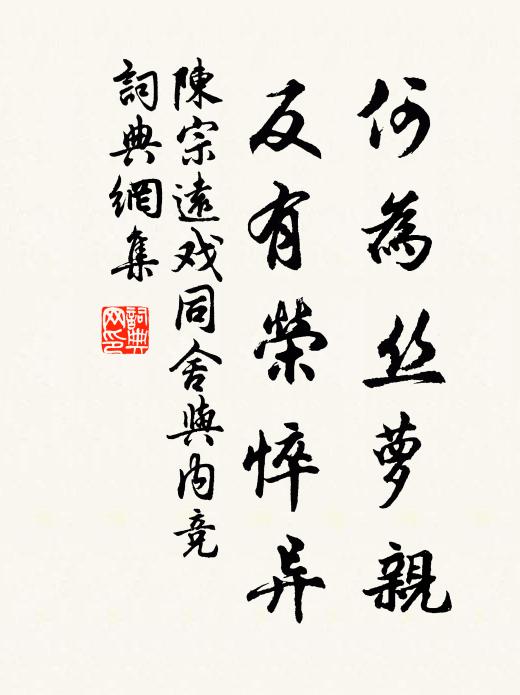 何為丝萝親
反有榮悴异
陳宗遠戏同舍與内竞
詞典網集
詞典
网印